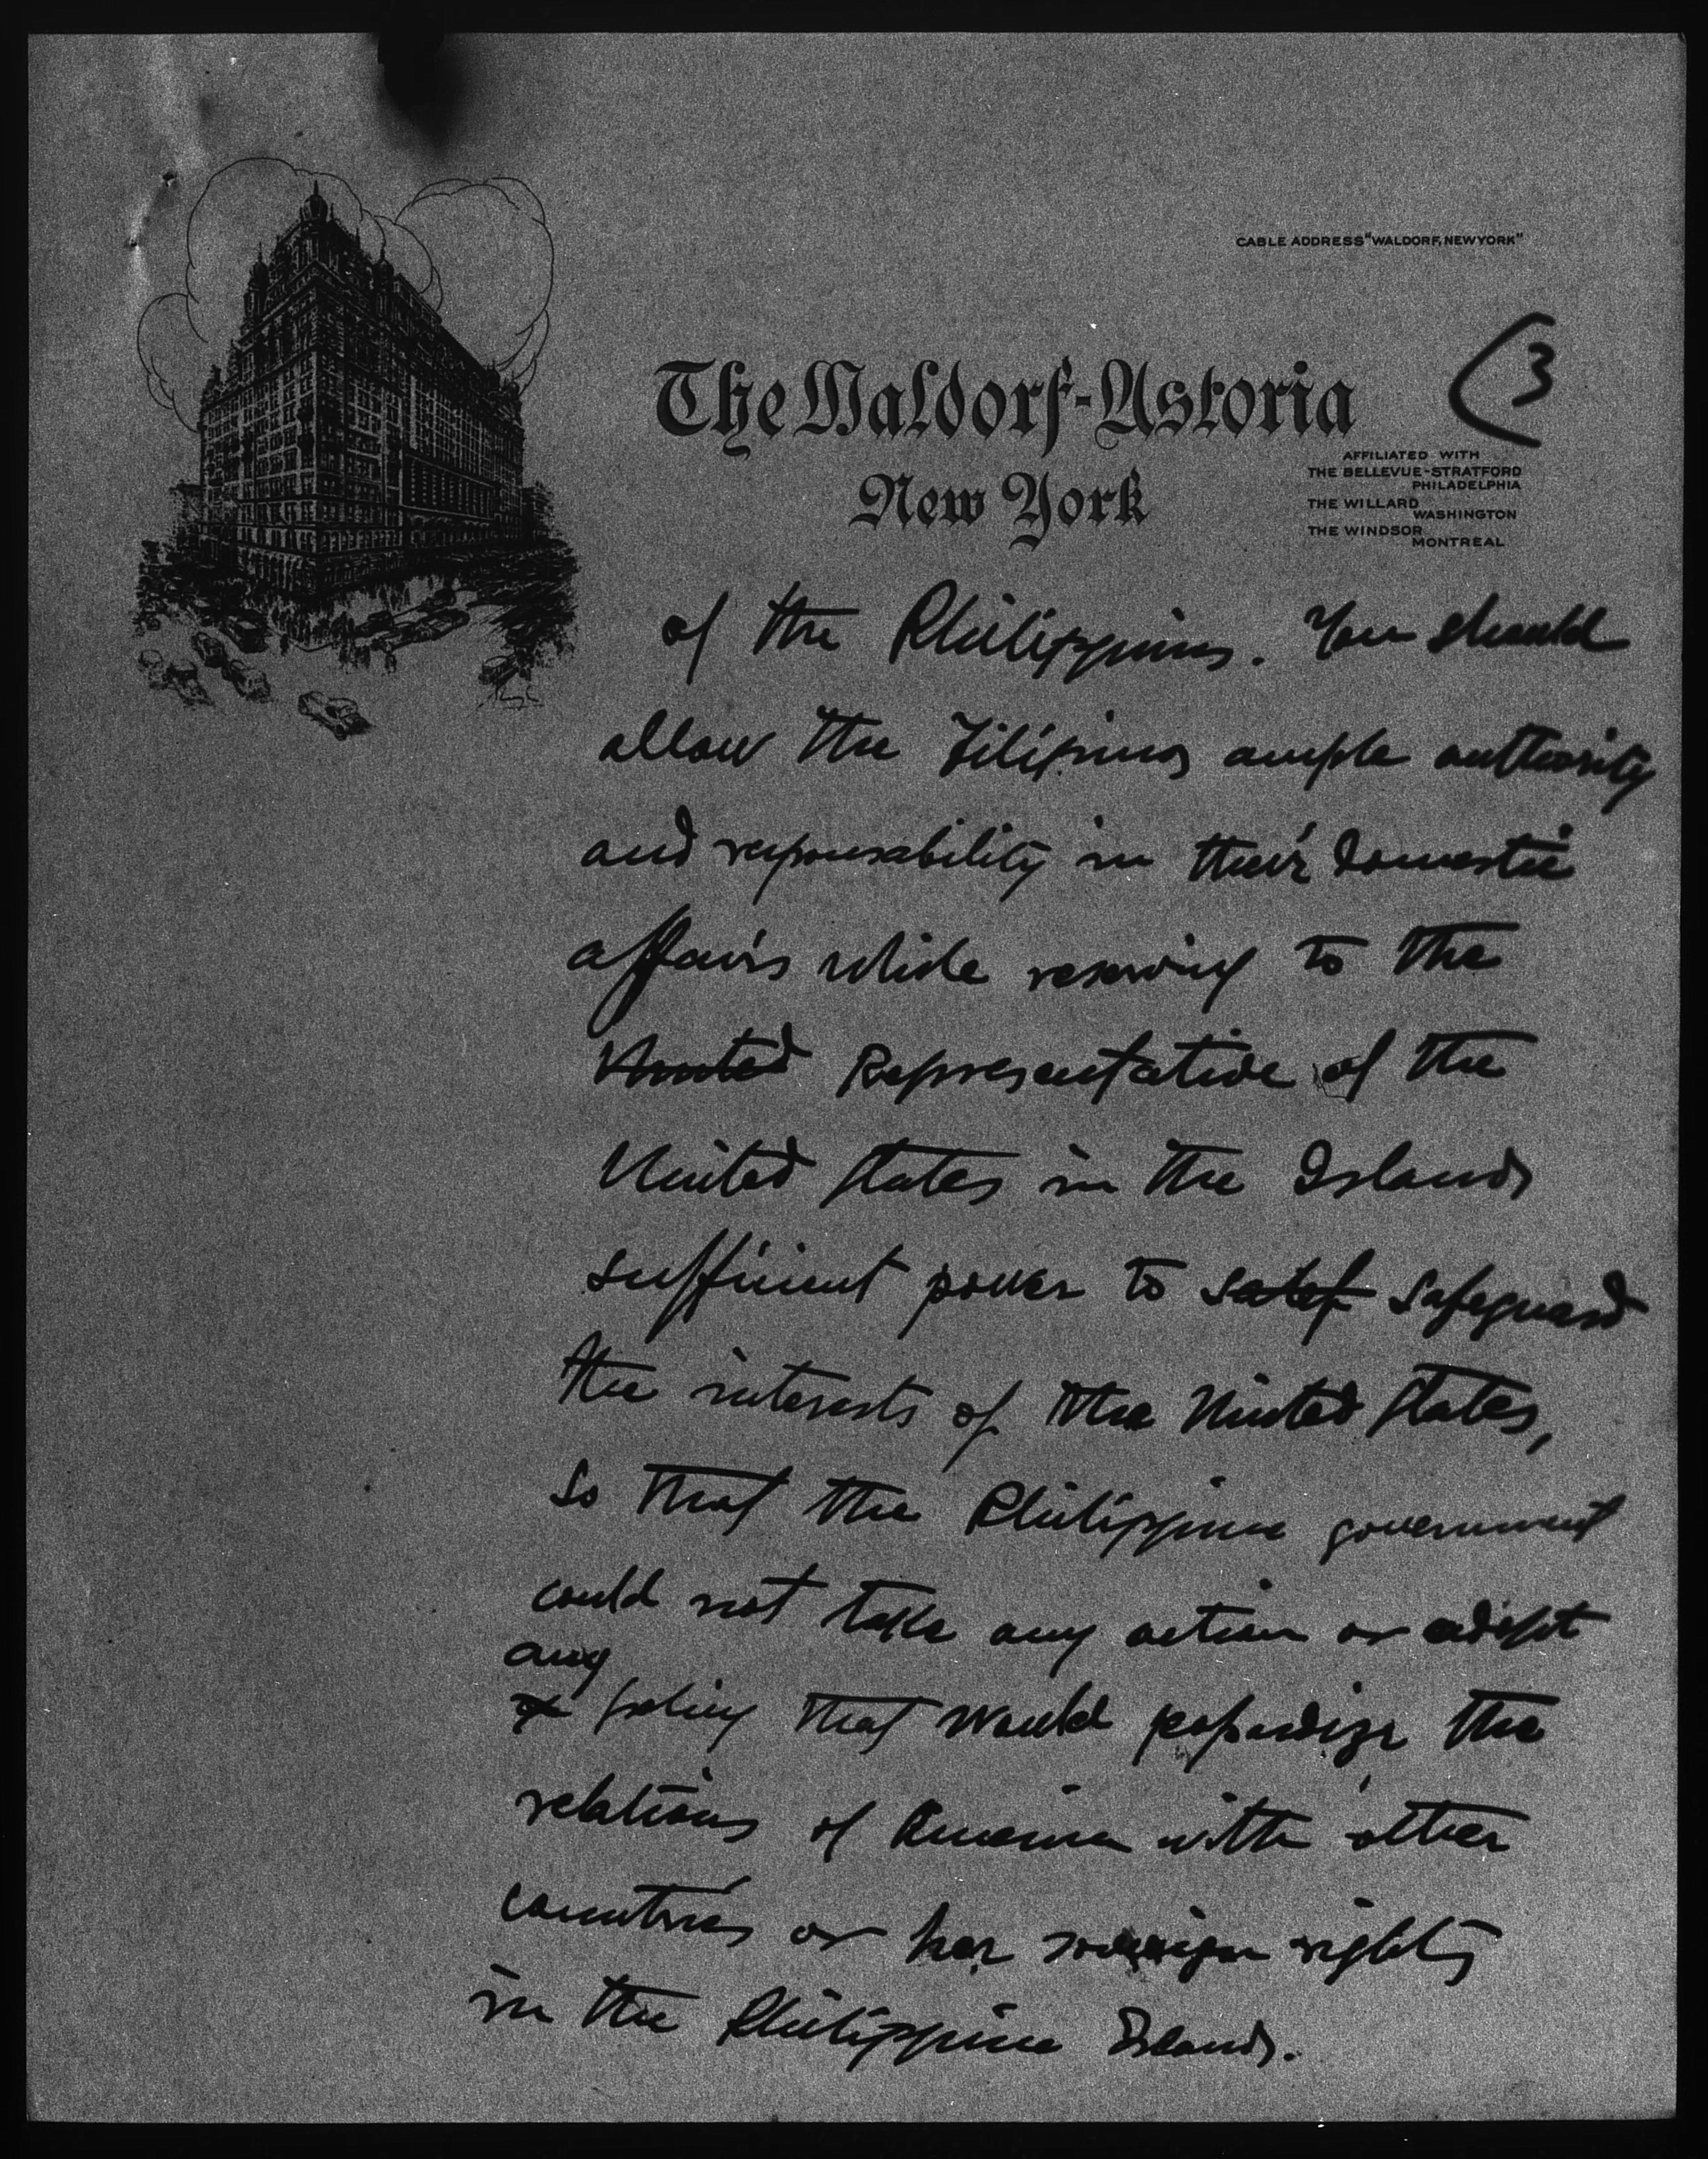 CABLE ADDRESS "WALDORF, NEWYORK"
The Waldorf-Astoria
New York
(3
AFFILIATED WITH
THE BELLEVUE-STRATFORD
PHILADELPHIA
THE WILLARD
WASHINGTON
THE WINDSOR
MONTREAL
of the Philippines. You should
allow the Filipinos ample authority
and responsability in their domestic
affairs while reserving to the
United Representative of the
United States in the Islands
sufficient power to safeguard
the interests of the United States,
so that the Philippine government
could not take any action or adopt
any
policy that would jeopardize the
relations of America with other
countries or her sovereign rights
in the Philippine Islands.